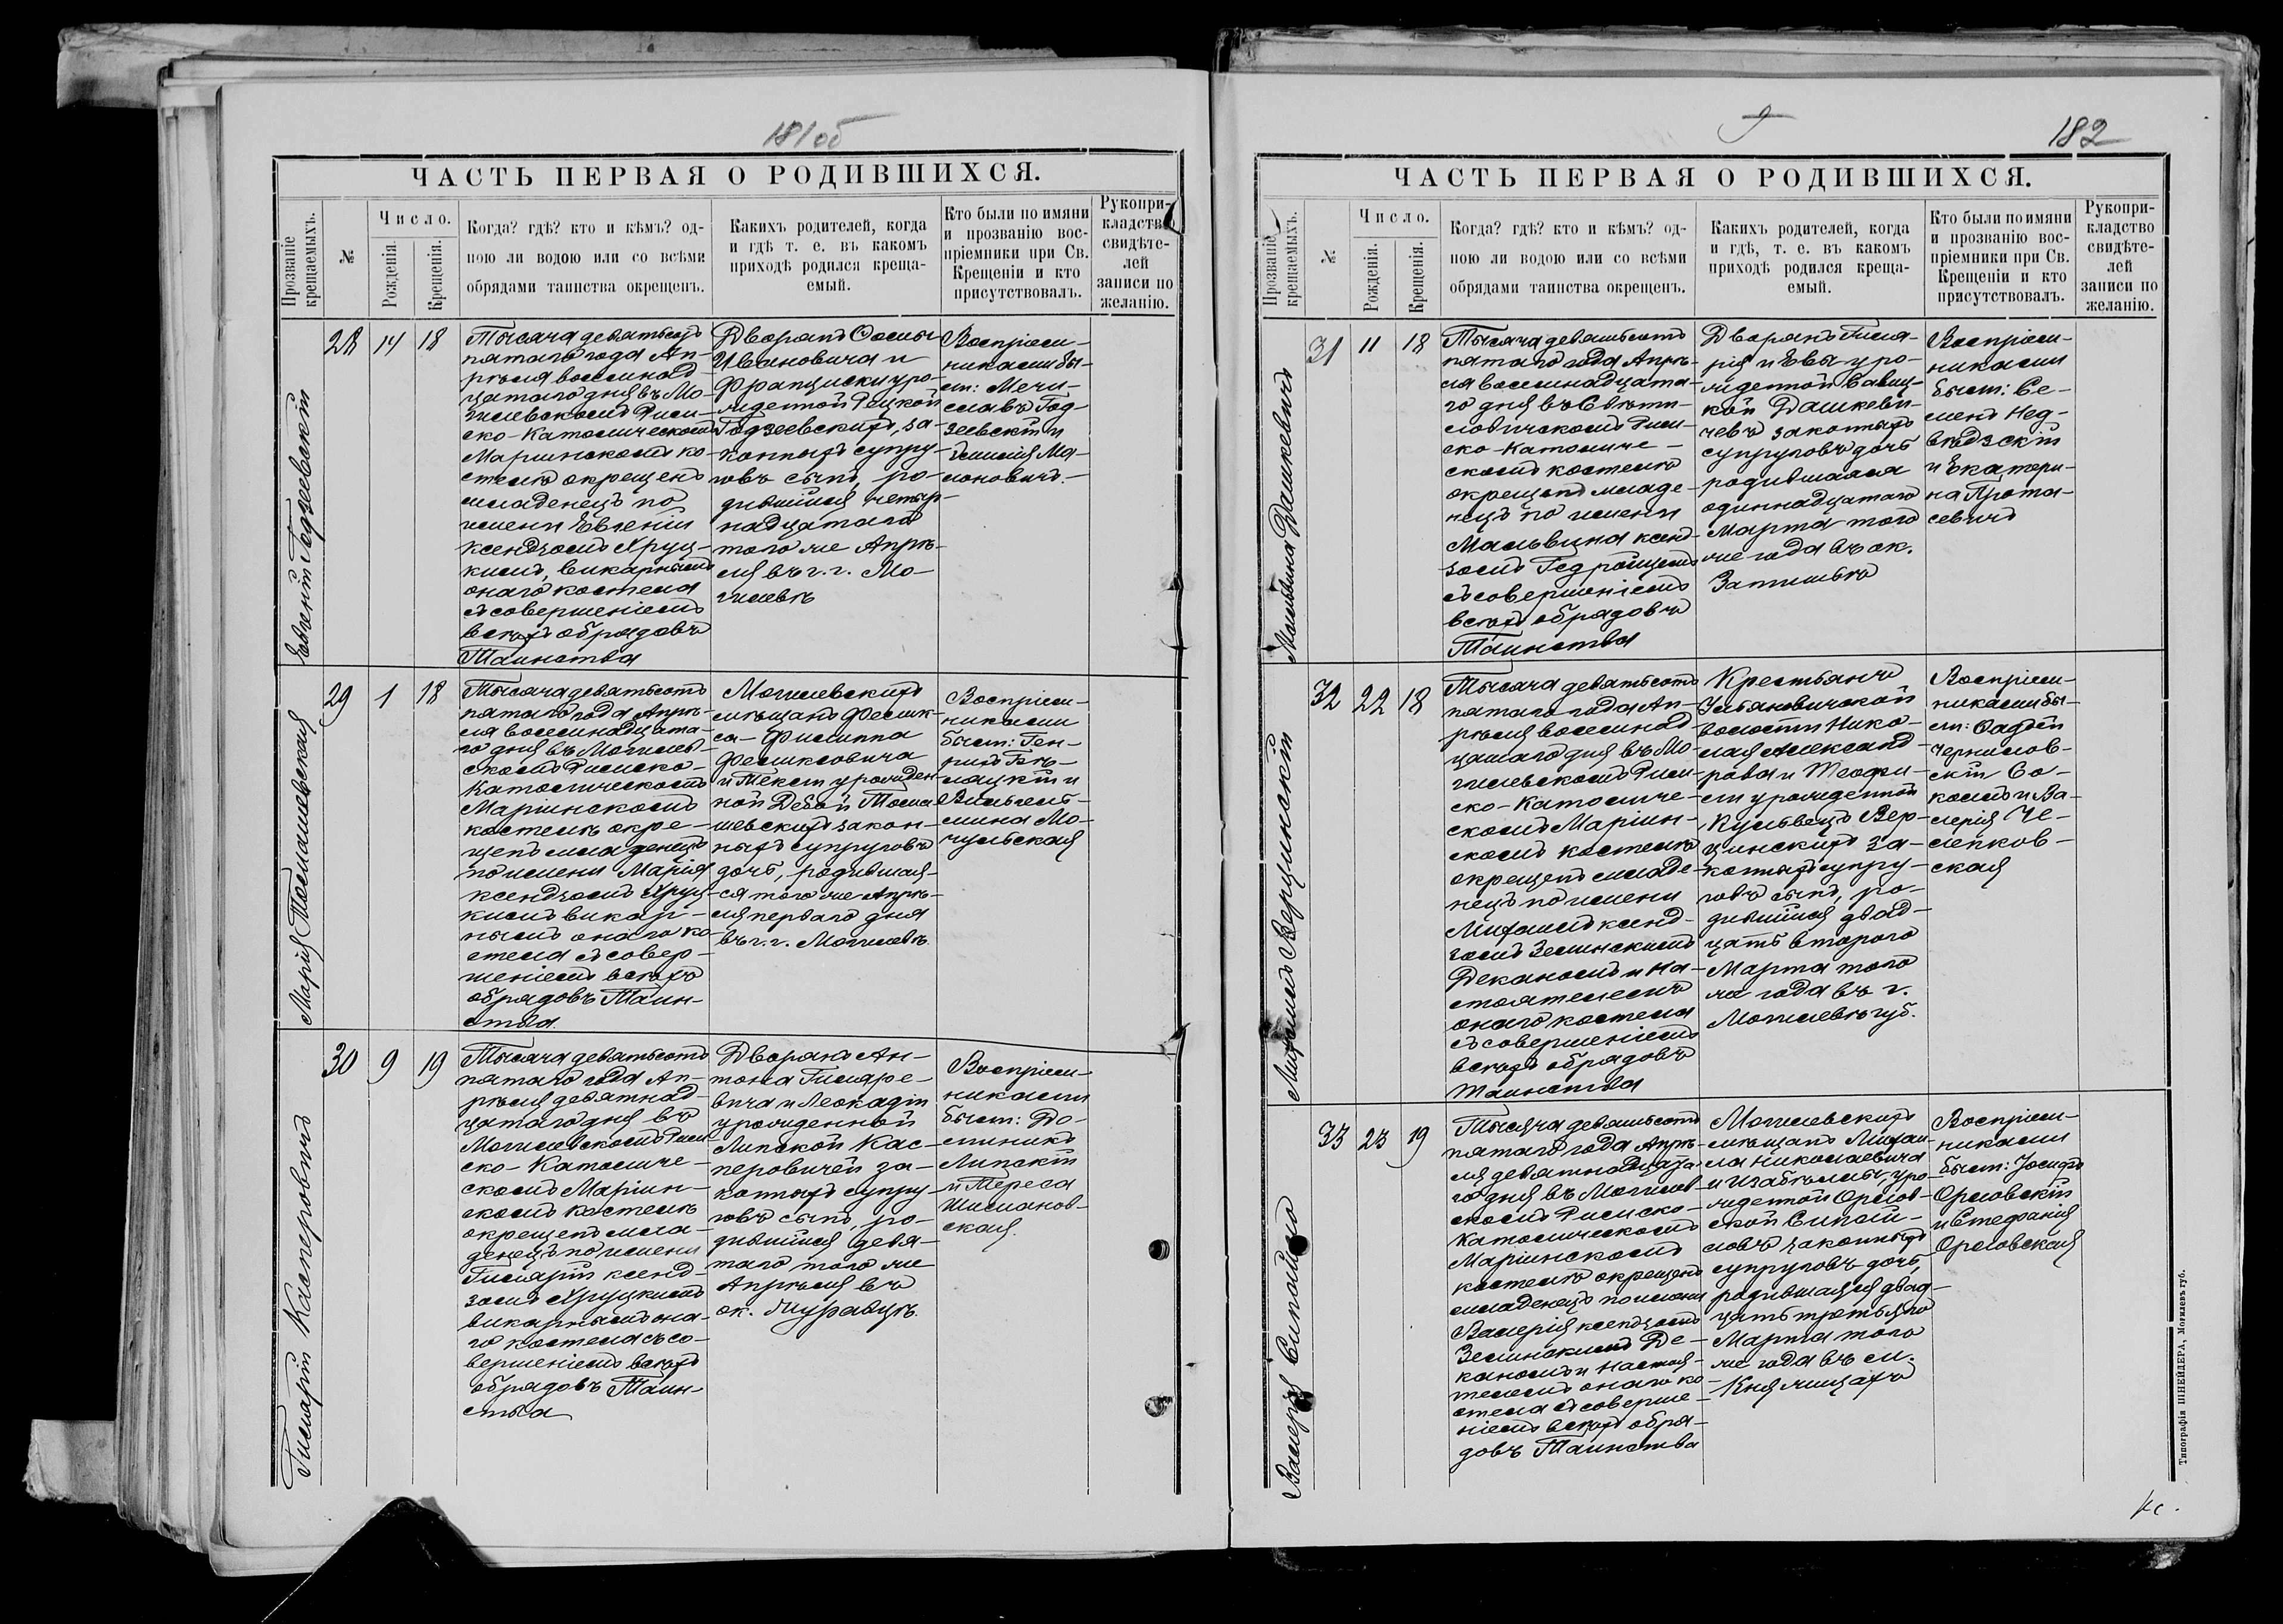 181об
ЧАСТЬ ПЕРВАЯ О РОДИВШИХСЯ.
Прозваніе крещаемыхъ.
№
Число.
Рожденія.
Крещенія.
Когда? гдѣ? кто и кѣмъ? од-
ною ли водою или со всѣми
обрядами таинства окрещенъ.
Какихъ родителей, когда
и гдѣ т. е. въ какомъ
приходѣ родился креща-
емый.
Кто были по имяни
и прозванію вос-
пріемники при Св.
Крещеніи и кто
присутствовалъ.
Рукопри-
кладство
свидѣте-
лей
записи по
желанію.
Евгеній Годзеевскій
28
14
18
Тысяча девятьсотъ
пятаго года Ап-
рѣля восемнад-
цатаго дня въ Мо-
гилевскомъ Рим-
ско-Католическомъ
Маріинскомъ ко-
стелѣ окрещенъ
младенецъ по
имени Евгеній
ксендзомъ Хруц-
кимъ, викарнымъ
онаго костела
съ совершеніемъ
всѣхъ обрядовъ
Таинства
Дворянъ Осипа
Ивановича и
Франциски уро-
жденной Рецкой
Годзеевскихъ, за-
конныхъ супру-
говъ сынъ, ро-
дившійся четыр-
надцатаго
того же Апрѣ-
ля въ г. г. Мо-
гилевѣ
Воспріем-
никами бы-
ли: Мечи-
славъ Год-
зеевскій и
Эмилія Ма-
лоновичъ.
Марія Томашевская
29
1
18
Тысяча девятьсотъ
пятаго года Апрѣ-
ля восемнадцата-
го дня въ Могилев-
скомъ Римско-
Католическомъ
Маріинскомъ
костелѣ окре-
щенъ младенецъ
по имени Марія
ксендзомъ Хруц-
кимъ викар-
нымъ онаго ко-
стела съ совер-
шеніемъ всѣхъ
обрядовъ Таин-
ства
Могилевскихъ
мѣщанъ Феликс-
са-Филиппа
Феликсовича
и Теклы урожден-
ной Дебой Тома-
шевскихъ закон-
ныхъ супруговъ
дочь, родившая-
ся того же Апрѣ-
ля перваго дня
въ г. г. Могилевѣ
Воспріем-
никами
были: Ген-
рихъ
и
Вильгель-
мина Мо-
чульская
Гиларій Касперовичъ
30
9
19
Тысяча девятьсотъ
пятаго года Ап-
рѣля девятнад-
цатаго дня въ
Могилевскомъ Рим-
ско-Католиче-
скомъ Маріин-
скомъ костелѣ
окрещенъ мла-
денецъ по имени
Гиларій ксенд-
зомъ Хруцкимъ
викарнымъ она-
го костела съ со-
вершеніемъ всѣхъ
обрядовъ Таин-
ства
Дворянъ Ан-
тона Гиляре-
вича и Леокадіи
урожденной
Липской Кас-
перовичей за-
конныхъ супру-
говъ сынъ, ро-
дившійся девя-
таго того же
Апрѣля въ
ок. Муравцѣ.
Воспріем-
никами
были: До-
миникъ
Липскій
и Тереса
Шиманов-
ская.
9
182
ЧАСТЬ ПЕРВАЯ О РОДИВШИХСЯ.
Прозваніе крещаемыхъ.
№
Число.
Рожденія.
Крещенія.
Когда? гдѣ? кто и кѣмъ? од-
ною ли водою или со всѣми
обрядами таинства окрещенъ.
Какихъ родителей, когда
и гдѣ, т. е. въ какомъ
приходѣ родился креща-
емый.
Кто были по имяни
и прозванію вос-
пріемники при Св.
Крещеніи и кто
присутствовалъ.
Рукопри-
кладство
свидѣте-
лей
записи по
желанію.
Мальвина Дашкевичъ
31
11
18
Тысяча девятьсотъ
пятаго года Апрѣ-
ля восемнадцата-
го дня въ Святи-
ловичскомъ Рим-
ско-Католиче-
скомъ костелѣ
окрещенъ младе-
нецъ по имени
Мальвина ксенд-
зомъ Гедройцемъ
съ совершеніемъ
всѣхъ обрядовъ
Таинства
Дворянъ Гила-
рія и Евы уро-
жденной Савиц-
кой Дашкеви-
чевъ законныхъ
супруговъ дочь
родившаяся
одиннадцатаго
Марта того
же года въ ок.
Затишьѣ
Воспріем-
никами
были: Се-
менъ Нед-
вѣдзскій
и Екатери-
на Прота-
севичъ
Михаилъ Верцинскій
32
22
18
Тысяча девятьсотъ
пятаго года Ап-
рѣля восемнад-
цатаго дня въ Мо-
гилевскомъ Рим-
ско-Католиче-
скомъ Маріин-
скомъ костелѣ
окрещенъ младе-
нецъ по имени
Михаилъ ксенд-
зомъ Зелинскимъ
Деканомъ и На-
стоятелемъ
онаго костела
съ совершеніемъ
всѣхъ обрядовъ
Таинства
Крестьянъ
волости Нико-
лая Александ-
рова и Теофи-
ли урожденной
Кульвецъ Вер-
цинскихъ за-
конныхъ супру-
говъ сынъ, ро-
дившійся двад-
цать втораго
Марта того
же года въ г.
Могилевѣ губ.
Воспріем-
никами бы-
ли: Фаддей
Чернилов-
скій Со-
колъ и Ва-
лерія Че-
лепков-
ская
Валерія Сипайло
33
23
19
Тысяча девятьсотъ
пятаго года Апрѣ-
ля девятнадцата-
го дня въ Могилев-
скомъ Римско-
Католическомъ
Маріинскомъ
костелѣ окрещенъ
младенецъ по имени
Валерія ксендзомъ
Зелинскимъ Де-
каномъ и Настоя-
телемъ онаго ко-
стела съ соверше-
ніемъ всѣхъ обря-
довъ Таинства
Могилевскихъ
мѣщанъ Михаи-
ла Николаевича
и Изабеллы, уро-
жденной Орлов-
ской Сипай-
ловъ законныхъ
супруговъ дочь,
родившаяся двад-
цать третьяго
Марта того
же года въ м.
Княжицахъ
Воспріем-
никами
были: Іосифъ
Орловскій
и Стефанія
Орловская
Типографія ШНЕЙДЕРА, Могилевъ губ.